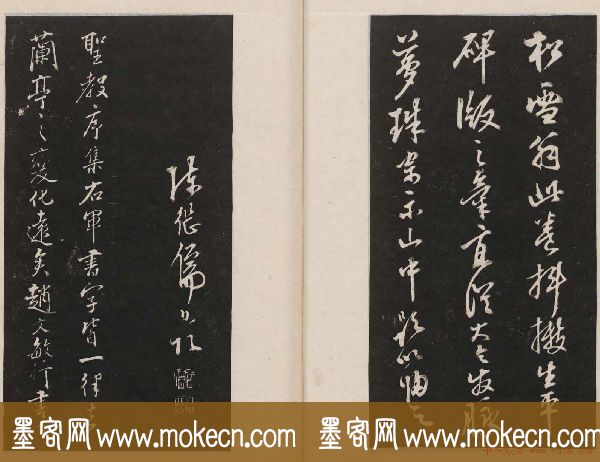 松雪翁此卷抖擻生平
碑版之氣直從大令發脈
夢珠示山中題以歸之
陳繼儒
聖教序集右軍書字皆一律去
蘭亭之變化遠矣趙文敏行書
墨客网 www.mokecn.com
墨客网 www.mokecn.com